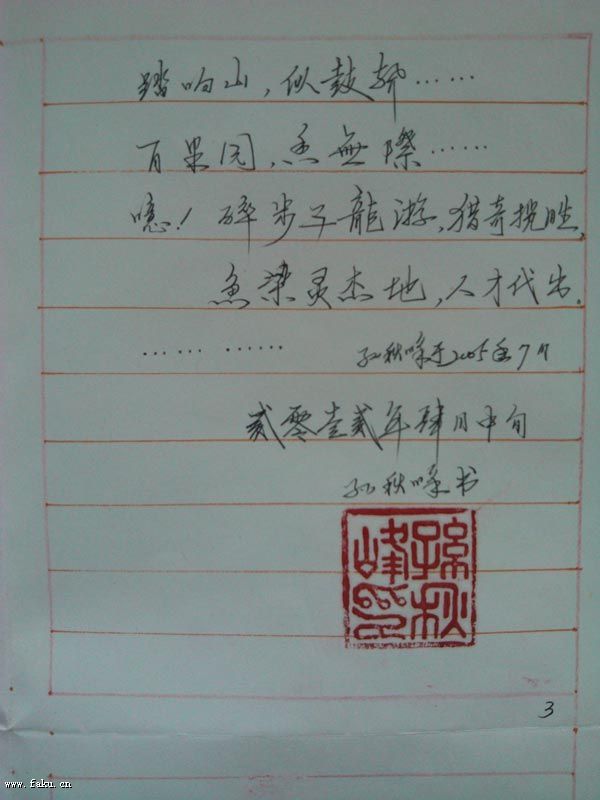 踏响山，似鼓鼙……
百果园，香無際……
噫！碎步子龍游，猎奇揽胜，
魚梁灵杰地，人才代出。
…… ……
孙秋峰于2005年7月
贰零壹贰年肆月中旬
孙秋峰书
孫秋峰印
3
www.faku.cn